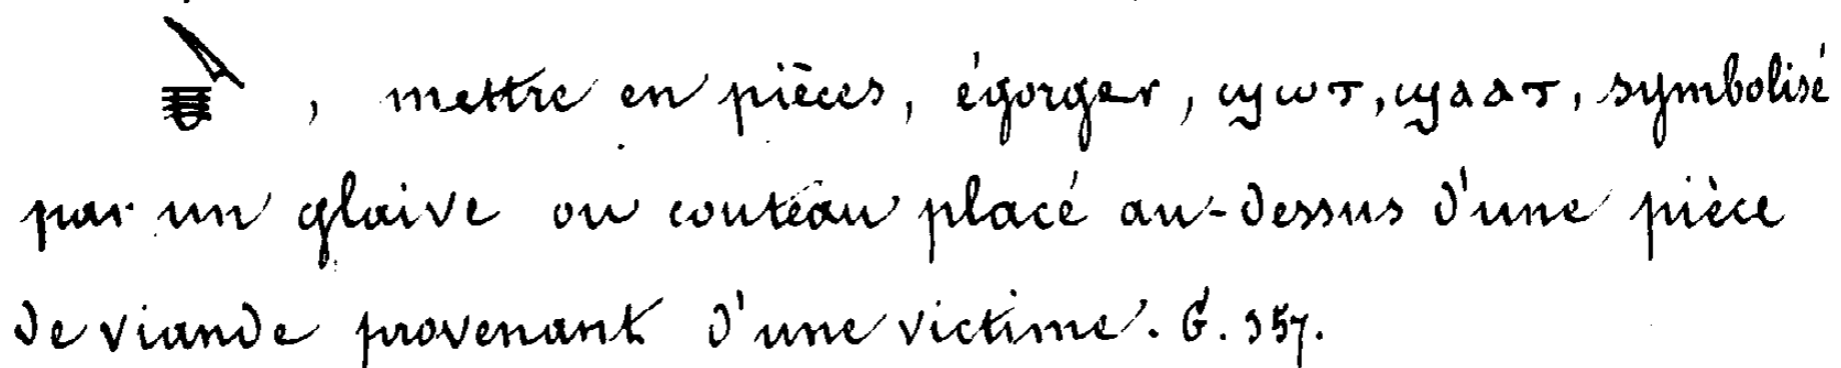 , mettre en pièces, égorger, ϣωτ, ϣⲁⲁⲧ, symbolisé
par un glaive ou couteau placé au-dessus d'une pièce
de viande provenant d'une victime. G. 357.